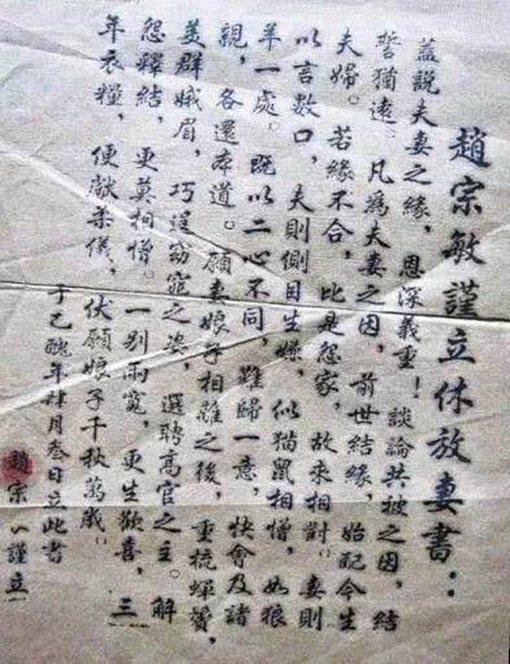 趙宗敏謹立休放妻書：
蓋說夫妻之緣，恩深義重！談論共被之因，結
誓猶遠。凡為夫妻之因，前世結緣，始配今生
夫婦。若緣不合，比是怨家，故來相對。妻則
以言數口，夫則側目生嫌，似猫鼠相憎，如狼
羊一處。既以二心不同，難歸一意，快會及諸
親，各還本道。願妻娘子相離之後，重梳蟬鬢，
美群娥眉，巧逞窈窕之姿，選聘高官之主。解
怨釋結，更莫相憎。一别兩寬，更生歡喜，三
年衣糧，便獻柔儀、伏願娘子千秋萬歲。
于乙醜年肆月叁日立此書
趙宗謹立